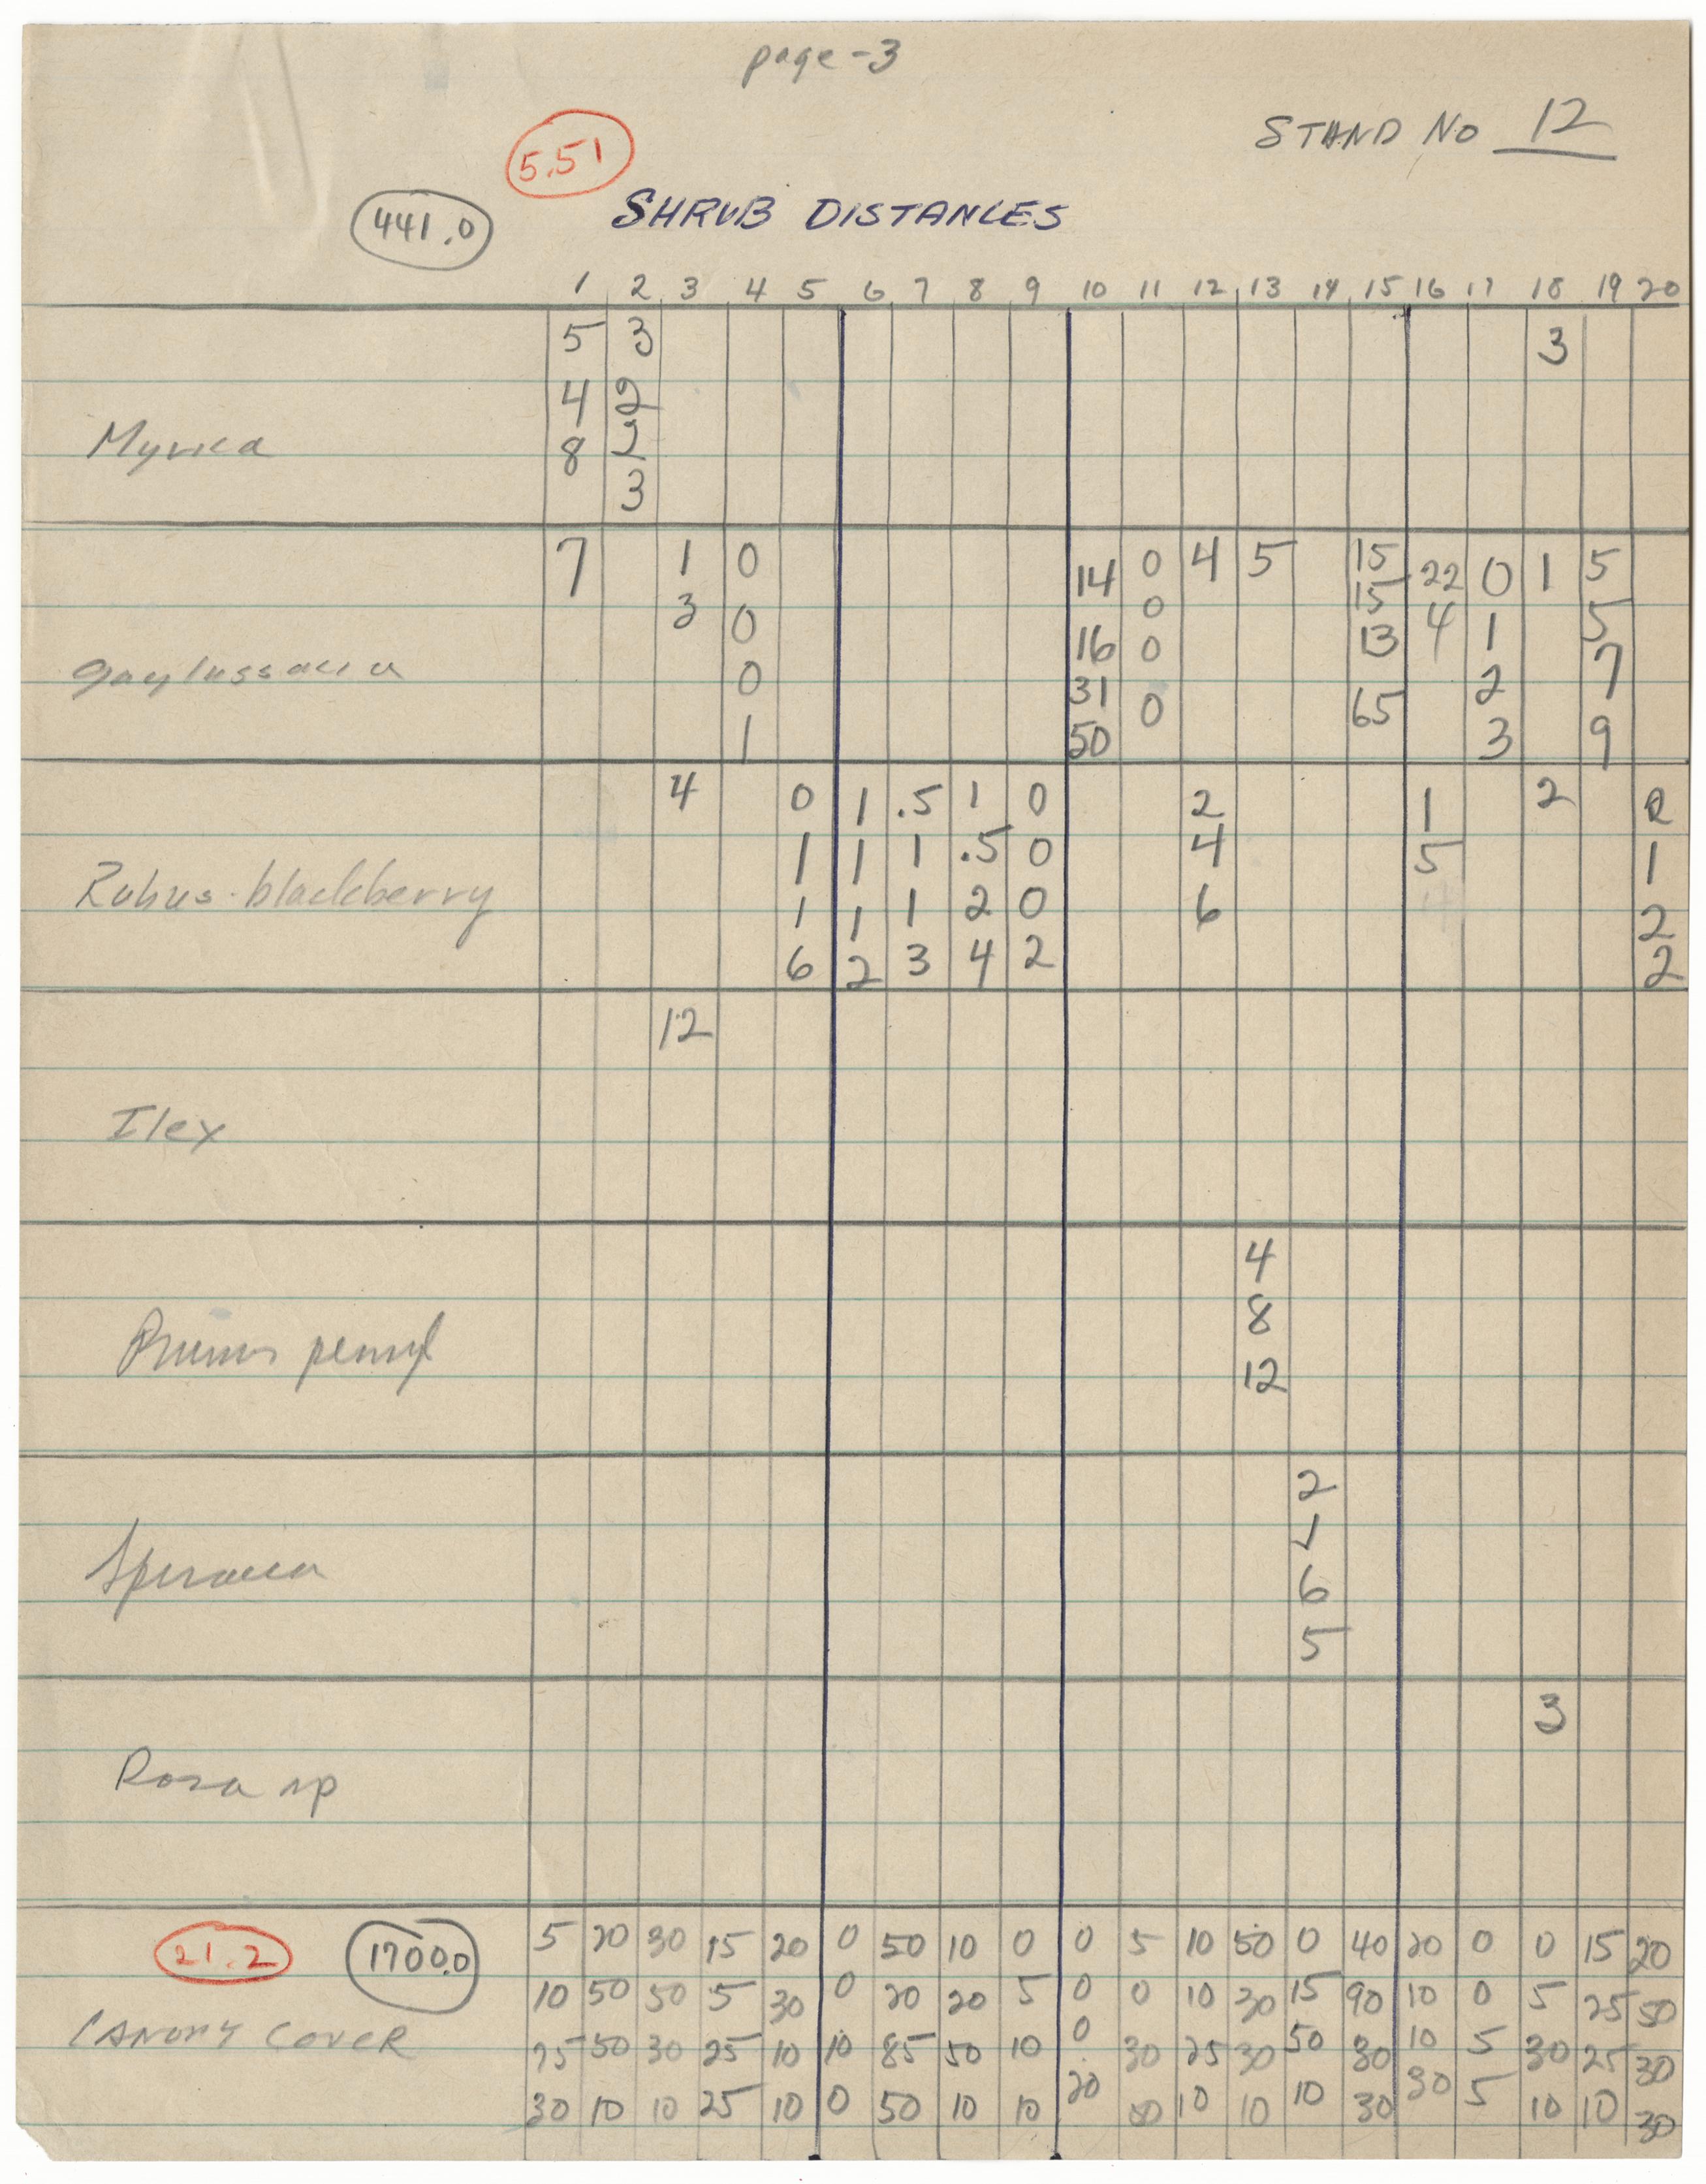 page-3
STAND NO 12
5.51
441.0
SHRUB DISTANCES
1 2 3 4 5 6 7 8 9 10 11 12 13 14 15 16 17 18 19 20
5 3 3
4 2
Myrica
8 2
3
7 1 0 14 0 4 5 15 22 0 1 5
3 0 0 15 4 1 5
Gaylussacia
0 16 0 13 2 7
1 31 0 65 3 9
50
4 0 1 .5 1 0 2 1 2 2
1 1 1 .5 0 4 5 1
Rubus-blackberry
1 1 1 2 0 6 2
6 2 3 4 2 2
12
Ilex
4
8
Prunus pensyl
12
2
1
Spiraea
6
5
3
Rosa sp
21.2
1700.0
5 20 30 15 20 0 50 10 0 0 5 10 50 0 40 20 0 0 15 20
10 50 50 5 30 0 20 20 5 0 0 10 30 15 90 10 0 5 25 50
CANOPY COVER
75 50 30 25 10 10 85 50 10 0 30 25 30 50 30 10 5 30 25 30
30 10 10 25 10 0 50 10 10 20 10 10 10 30 30 5 10 10 30